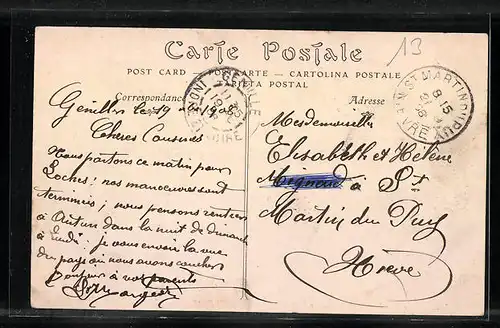 13
Carte Postale
POST CARD — POSTKARTE — CARTOLINA POSTALE
TARJETA POSTAL
Correspondance
Genillé le 19
Chères Cousines
Nous partons ce matin pour
Loches: nos manoeuvres sont
terminées; nous pensons rentrer
à Autun dans la nuit de dimanche
à lundi: je vous envoie la vue
du pays où nous avons coucher
Bonjour à vos parents
Adresse
Mesdemoiselles
Elisabeth et Hélène
à St
Martin du Puy
Nièvre
ST MARTIN DU PUY
8-15
NIÈVRE